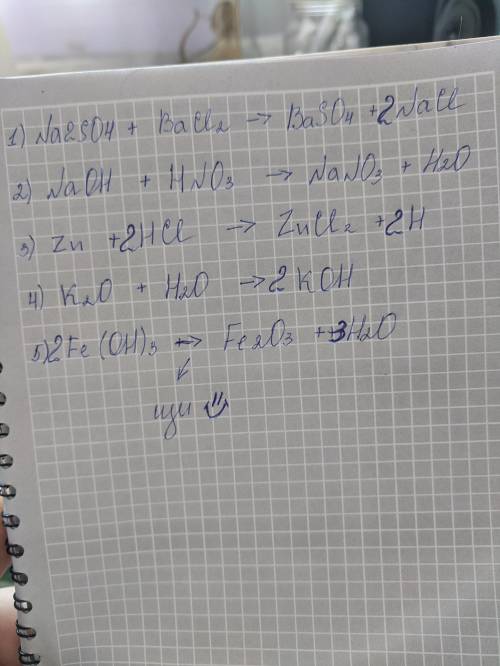 1) Na2SO4 + BaCl₂ → BaSO₄ + 2NaCl
2) NaOH + HNO₃ → NaNO₃ + H₂O
3) Zn + 2HCl → ZnCl₂ + 2H
4) K₂O + H₂O → 2KOH
5) 2Fe(OH)₃ ↔ Fe₂O₃ + 3H₂O